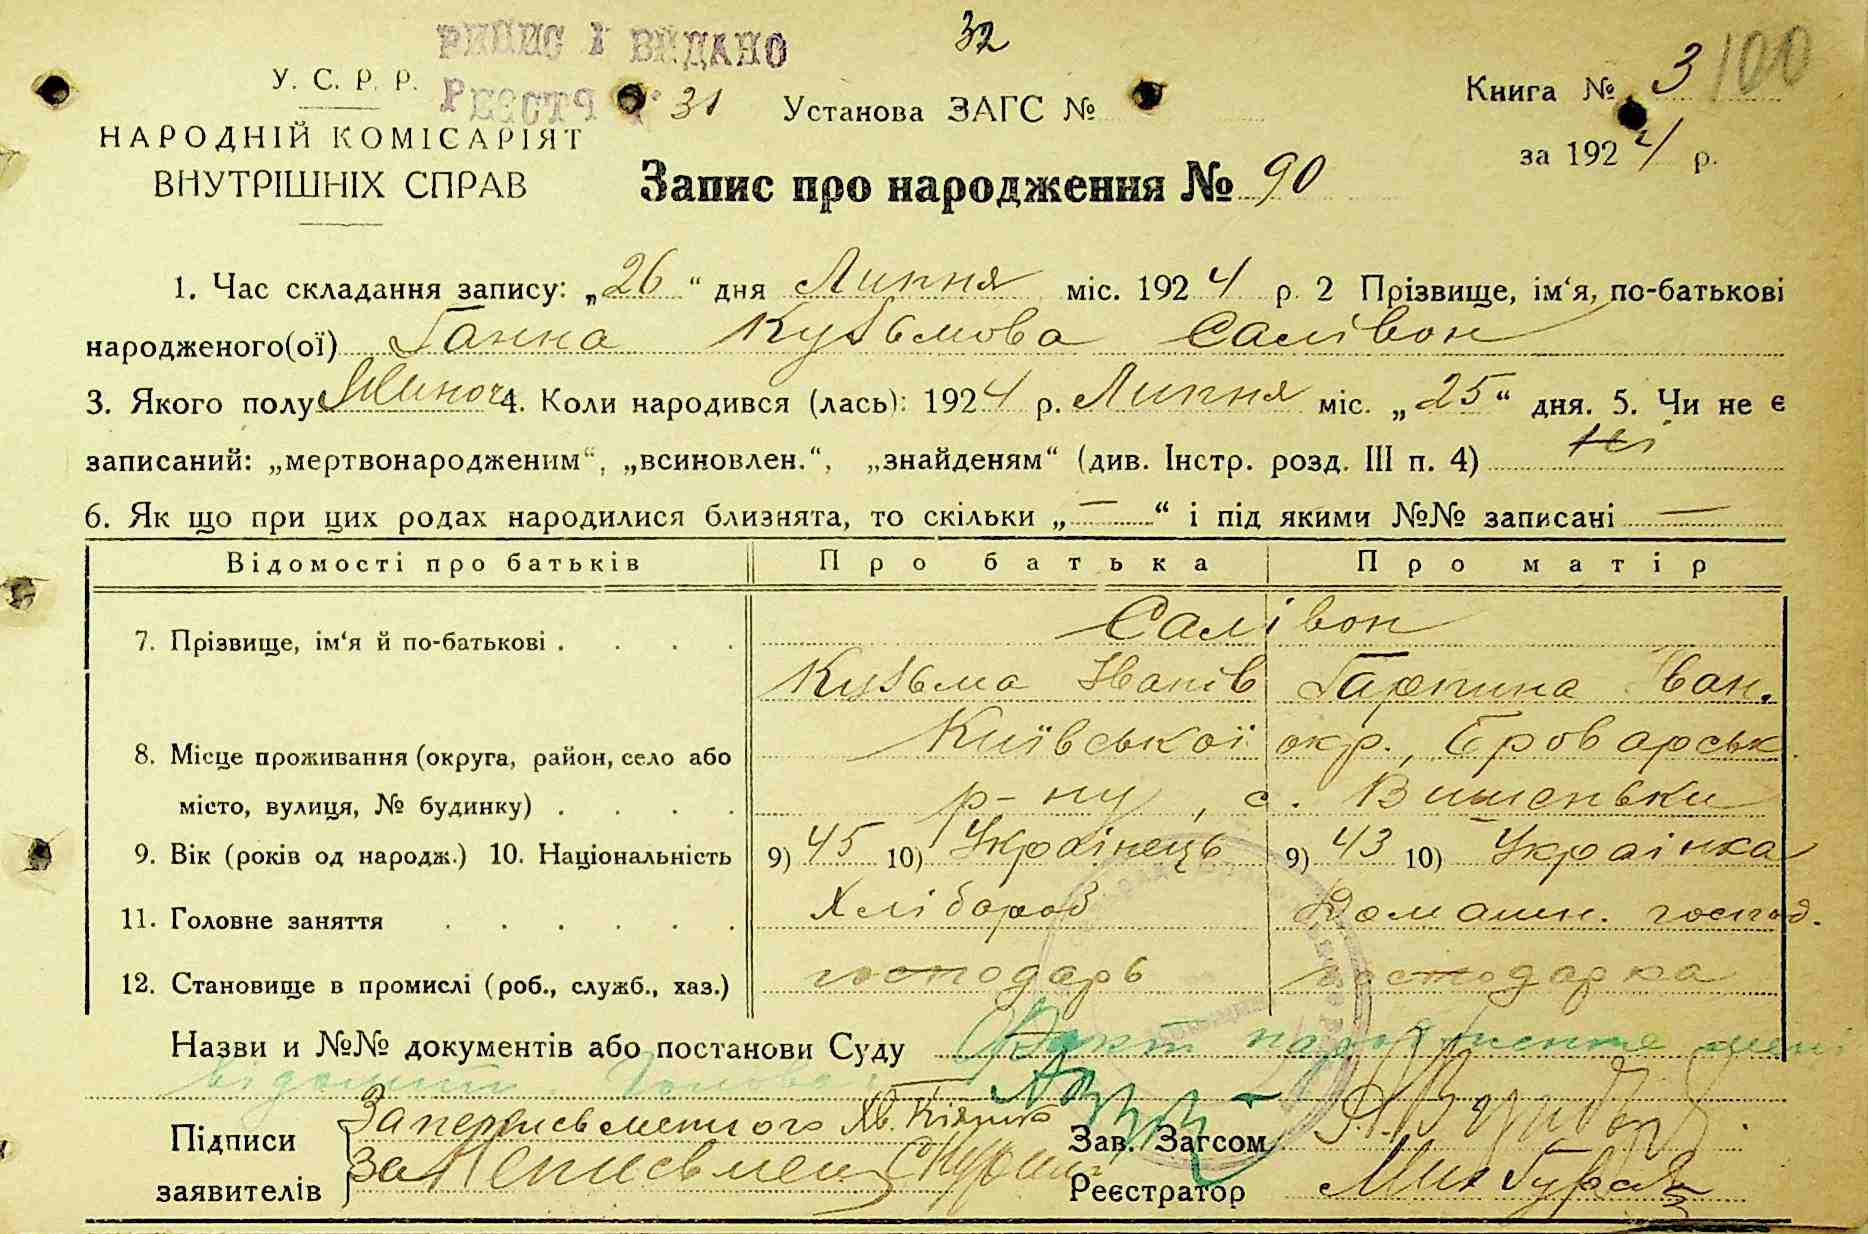 32
У. С. Р. Р. ВИПИС ВИДАНО
РЕЄСТР 31 Установа ЗАГС № Книга № 3 100
НАРОДНІЙ КОМІСАРІЯТ за 1924 р.
ВНУТРІШНІХ СПРАВ Запис про народження № 90
1. Час складання запису: „26“ дня Липня міс. 1924 р. 2 Прізвище, ім‘я, по-батькові
народженого(ої) Ганна Кузьмова Салівон
3. Якого полу Жіноч 4. Коли народився (лась): 1924 р. Липня міс. „25“ дня. 5. Чи не є
записаний: „мертвонародженим“, „всиновлен.“, „знайденям“ (див. Інстр. розд. III п. 4) Ні
6. Як що при цих родах народилися близнята, то скільки „—“ і під якими №№ записані —
Відомості про батьків Про батька Про матір
7. Прізвище, ім‘я й по-батькові . . . . Салівон
Кузьма Іванів Гарпина Іван.
8. Місце проживання (округа, район, село або Київської окр., Броварськ.
місто, вулиця, № будинку) . . . . р-ну, с. Вишеньки
9. Вік (років од народж.) 10. Національність 9) 45 10) Українець 9) 43 10) Українка
11. Головне заняття . . . . . . Хлібороб Домашн. господ.
12. Становище в промислі (роб., служб., хаз.) господарь господарка
Назви и №№ документів або постанови Суду Факт народження мені
відомий. Голова
Підписи За неписьменного Зав. Загсом
заявителів За неписьмен Реєстратор